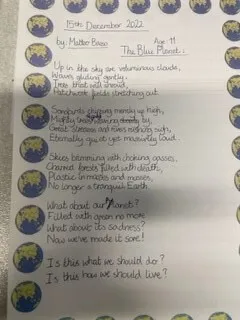 15th December 2022
by: Matteo Age: 11
The Blue Planet:
Up in the sky are voluminous clouds,
Waves gliding gently.
Trees that will shroud,
Patchwork fields stretching out.
Sunbursts shining merrily up high,
Mighty trees by,
Great streams and rivers rushing with,
Eternally quiet yet massively loud.
Skies brimming with choking gasses,
Charred forests filled with death,
Plastic in masses and masses,
No longer a tranquil Earth.
What about our planets?
Filled with green no more
What about its sadness?
Now we've made it sore!
Is this what we should do?
Is this how we should live?